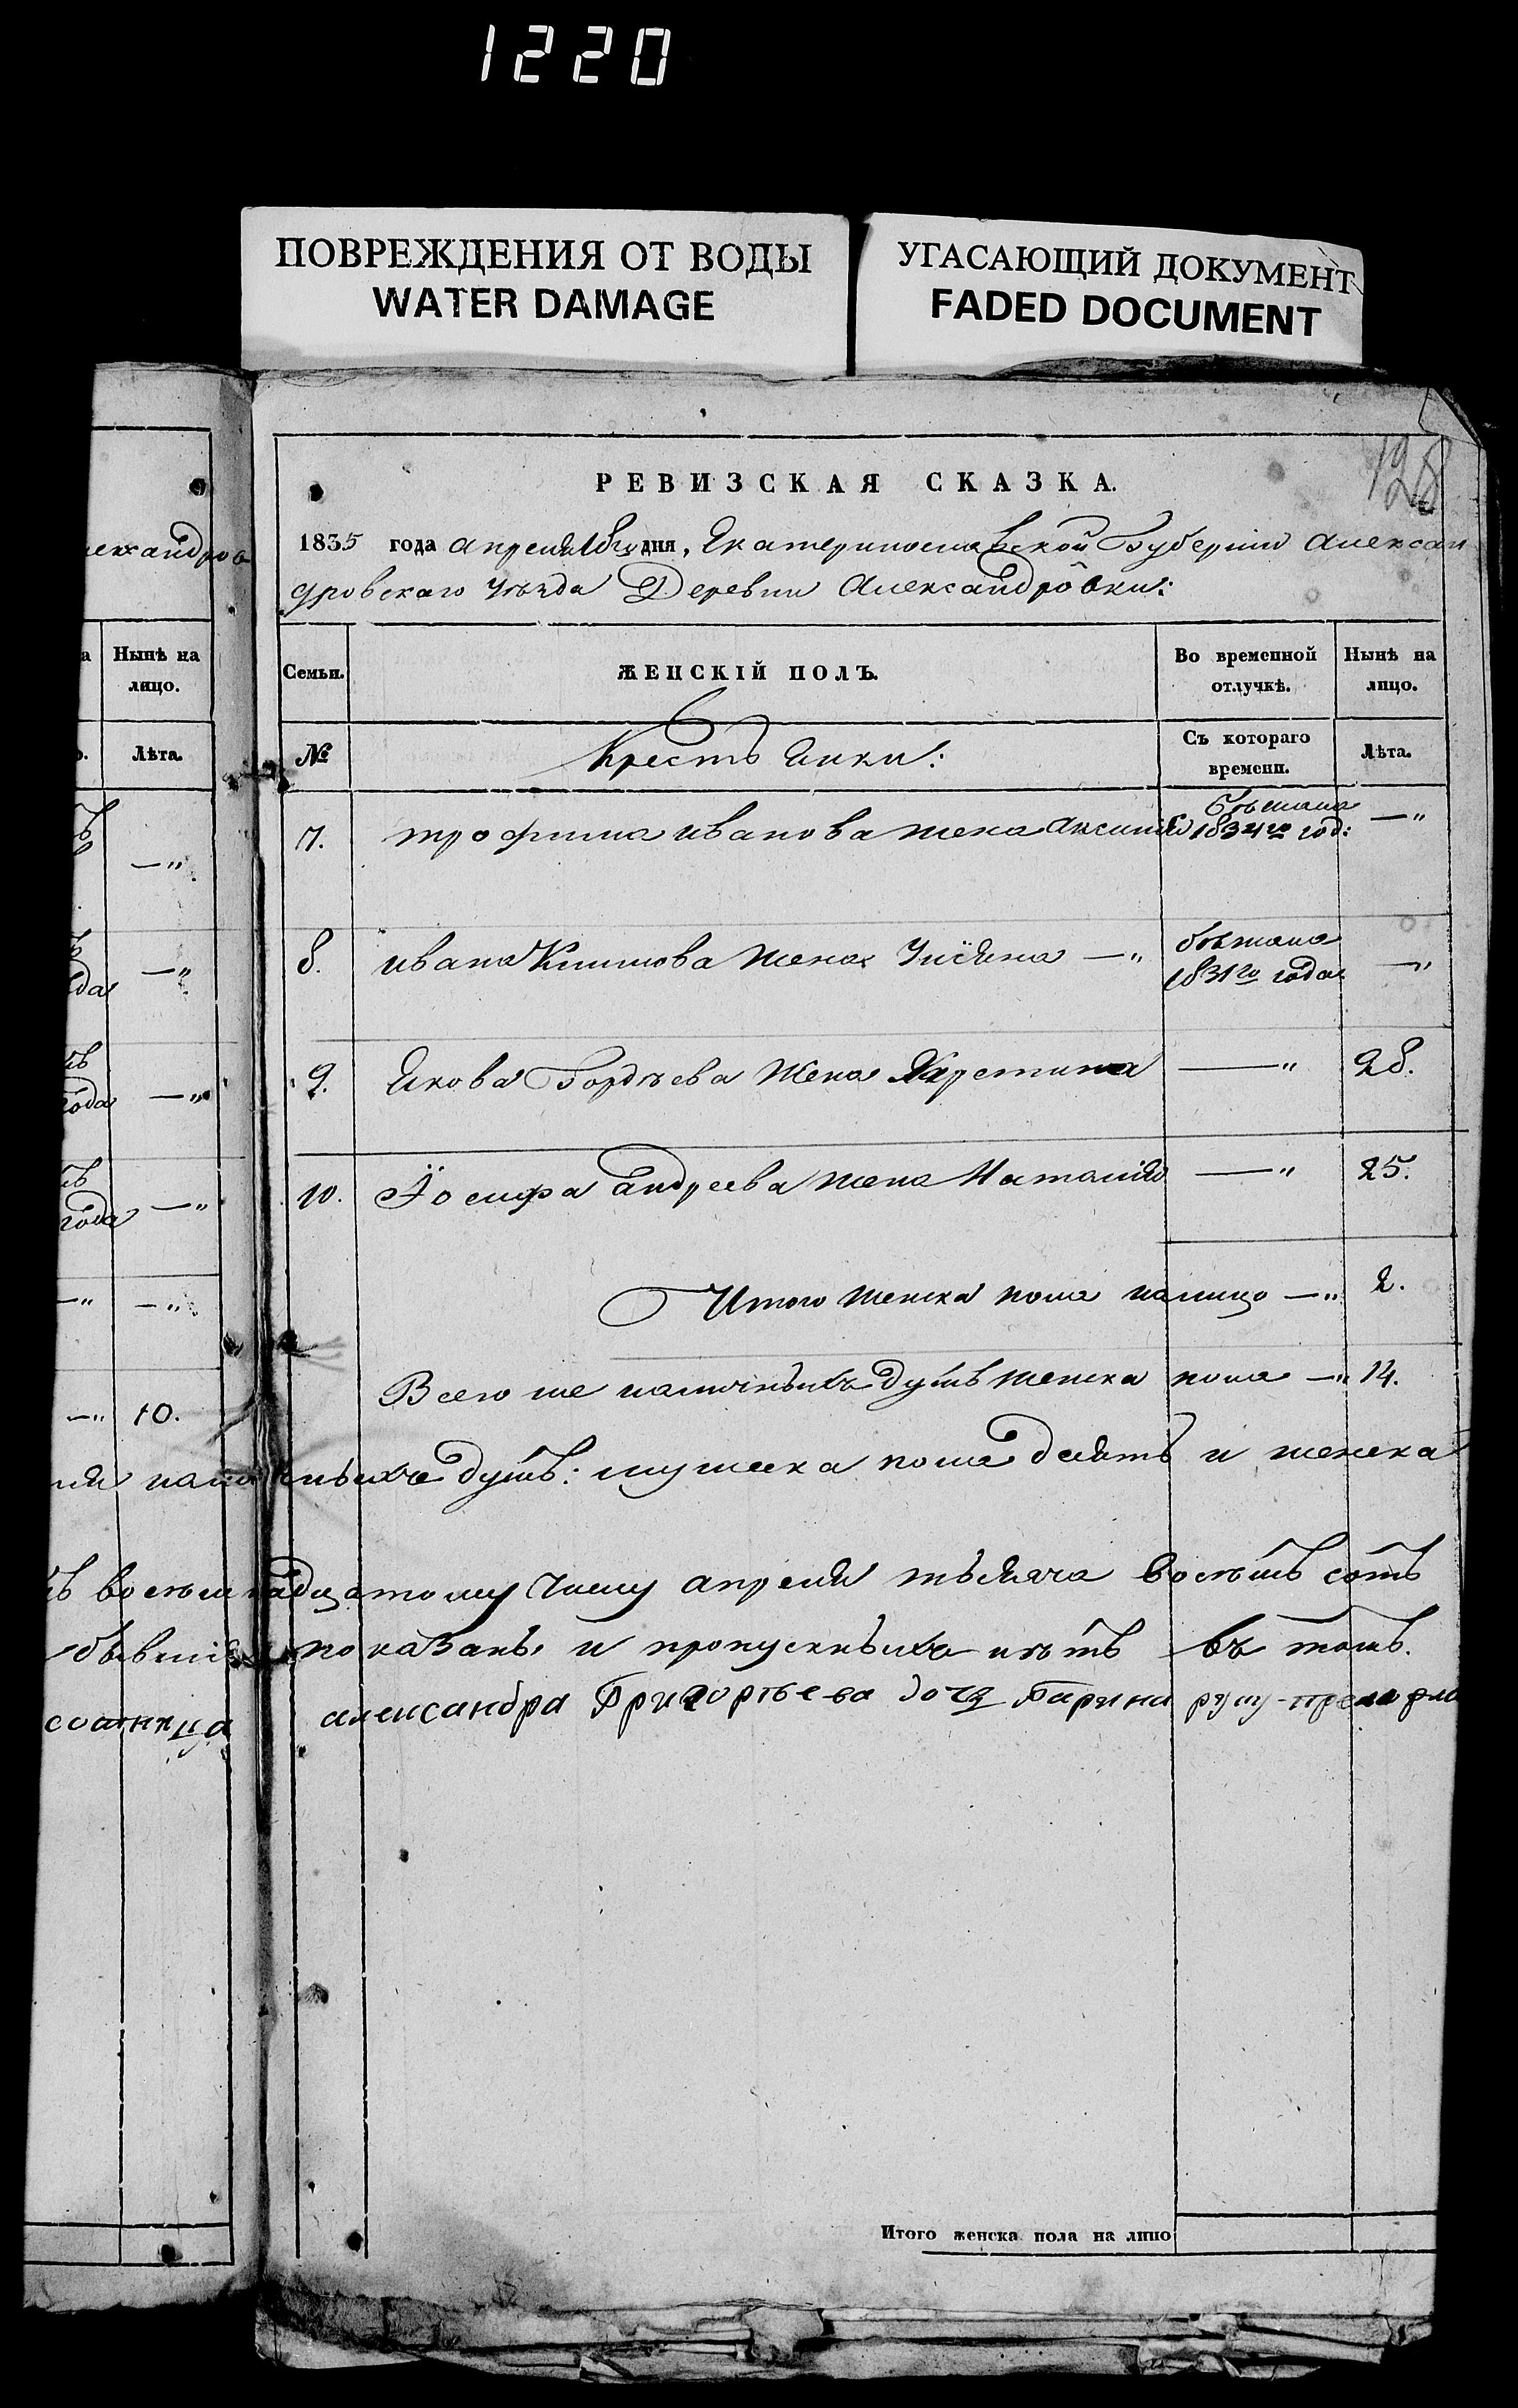 1220
ПОВРЕЖДЕНИЯ ОТ ВОДЫ
WATER DAMAGE
УГАСАЮЩИЙ ДОКУМЕНТ
FADED DOCUMENT
128
лександров
Нынѣ на
лицо.
Лѣта.
—"
—"
года —"
года —"
—" —"
—" 10.
РЕВИЗСКАЯ СКАЗКА.
1835 года апреля 18го дня, Екатеринославской Губерніи Алексан
дровскаго Уѣзда Деревни Александровки:
Семьи.
ЖЕНСКІЙ ПОЛЪ.
Во временной
отлучкѣ.
Нынѣ на
лицо.
№
Крестьянки:
Съ котораго
времени.
Лѣта.
7. трофима иванова жена Аксинія бѣжала с 1834го год: —"
8. ивана Климова жена Улияна —" бѣжала 1831го года —"
9. Якова Гордѣева жена Христина —" 28.
10. Іосифа андреева жена Наталія —" 25.
Итого женска пола налицо —" 2.
Всего же наличныхъ душъ женска пола —" 14.
наличныхъ душъ: мужеска пола десять и женска
восемнадцатому числу апреля тысяча восемь сотъ
показаны и пропускныхъ нѣтъ въ томъ.
александра Григорьева дочь руку приложила
Итого женска пола на лицо